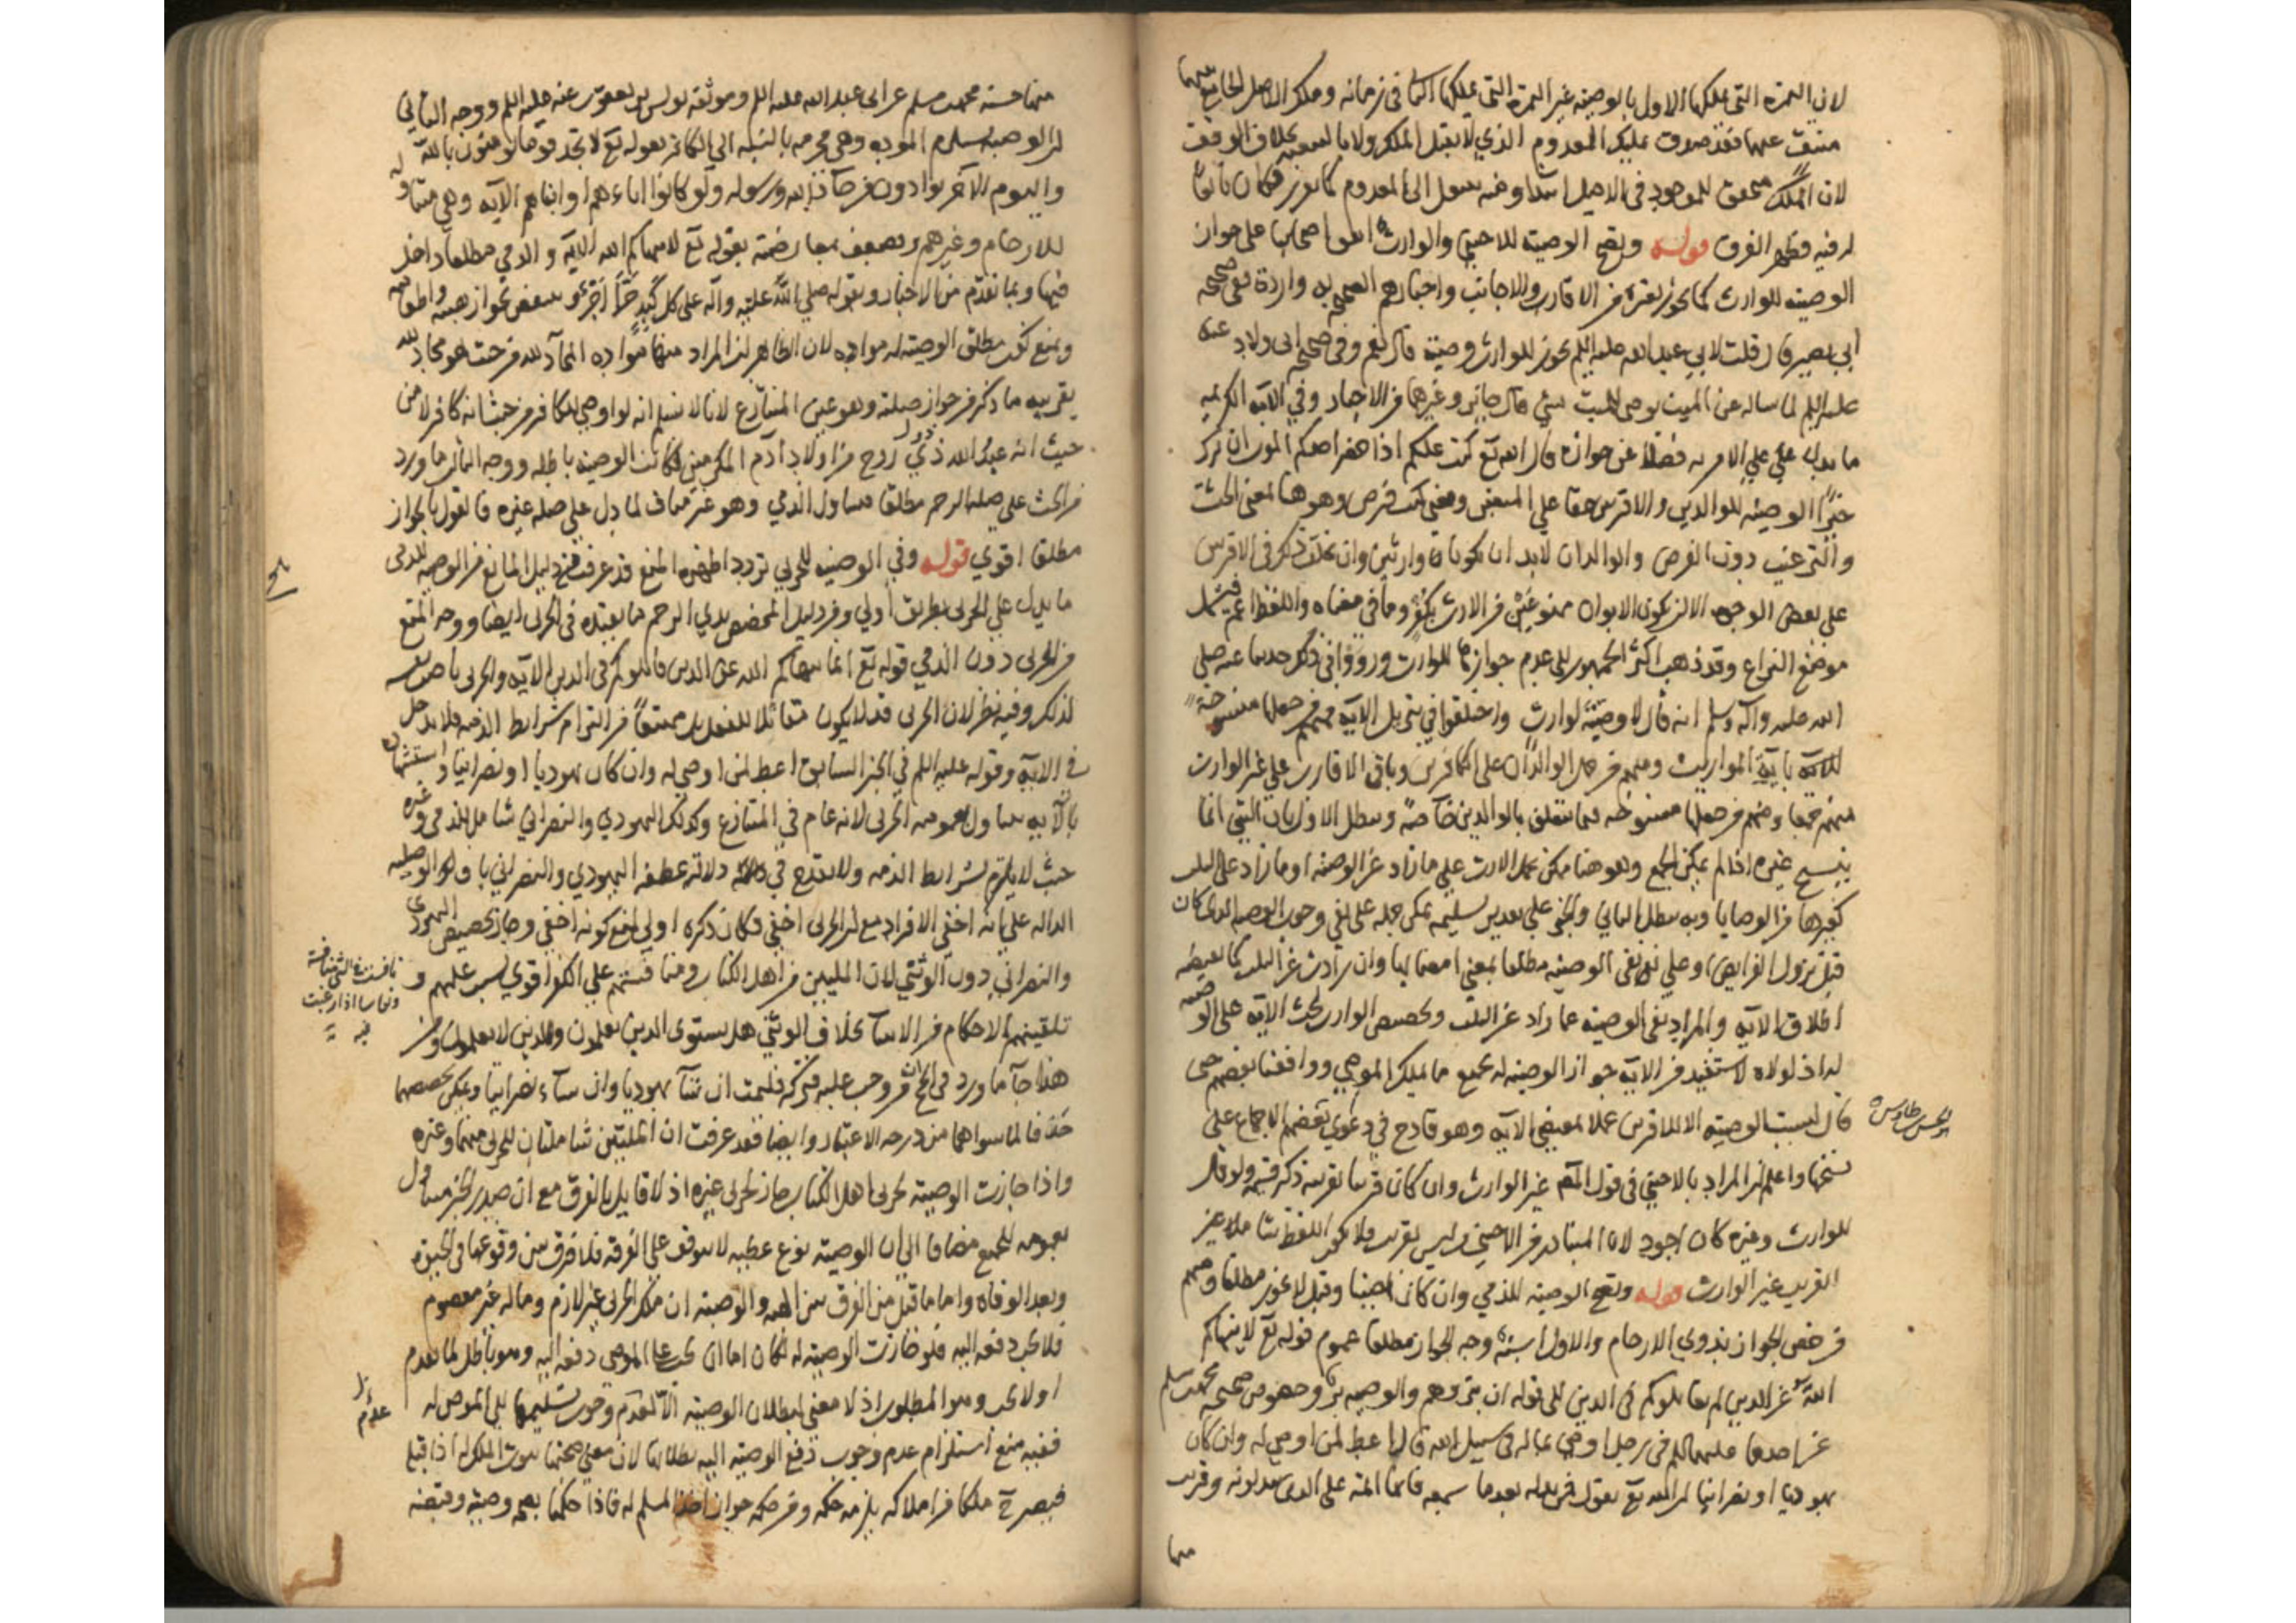 لان الثمرة التي ملكها الاول بالوصية غير الثمرة التي يملكها الثاني في زمانه وملك الاصل الجامع بينهما
منتف عنهما فقد صدق تمليك المعدوم الذي لا يقبل الملك ولا بالتبعية بخلاف الوقف
لان الملك متحقق للموجود في الاصل ابتداء ومنه ينتقل الى المعدوم كما تقرر فكان تابعا
له فيه فظهر الفرق قوله وتصح الوصية للاجنبي والوارث اتفق اصحابنا على جواز
الوصية للوارث كما يجوز لغيره من الاقارب والاجانب واخبارهم الصحيحة به واردة ففي صحيحة
ابي بصير قال قلت لابي عبد الله عليه السلم تجوز للوارث وصية قال نعم وفي صحيحة ابي ولاد عنه
عليه السلم لما سأله عن الميت يوصي للبنت بشي قال جائز وغيرهما من الاخبار وفي الآية الكريمة
ما يدل على الامر به فضلا عن جوازه قال الله تع كتب عليكم اذا حضر احدكم الموت ان ترك
خيرا الوصية للوالدين والاقربين حقا على المتقين ومعنى كتب فرض وهو هنا بمعنى الحث
والترغيب دون الفرض والوالدان لابد ان يكونا وارثين وان تخلف ذلك في الاقربين
على بعض الوجوه الا ان يكون الابوان ممنوعين من الارث بكفر وما في معناه واللفظ اعم فيشمل
موضع النزاع وقد ذهب اكثر الجمهور الى عدم جوازها للوارث ورووا في ذلك حديثا عنه صلى
الله عليه وآله وسلم انه قال لا وصية لوارث واختلفوا في تنزيل الآية فمنهم من جعلها منسوخة
للآية بآية المواريث ومنهم من حمل الوالدان على الكافرين وباقي الاقارب على غير الوارث
منهم جمعا ومنهم من جعلها منسوخة فيما يتعلق بالوالدين خاصة ويبطل الاول بان الشي انما
ينسخ غيره اذا لم يمكن الجمع وهو هنا ممكن بحمل الارث على ما زاد عن الوصية او ما زاد على الثلث
كغيرها من الوصايا وبه يبطل الباقي والخبر على تقدير تسليمه يمكن حمله على نفي وجوب الوصية الذي كان
قبل نزول الفرايض او على نفي الوصية مطلقا بمعنى امضائها وان زادت عن الثلث كما يقتضيه
اطلاق الآية والمراد نفي الوصية عما زاد عن الثلث وتخصيص الوارث لحث الآية على الوصية
له اذ لولاه لاستفيد من الآية جواز الوصية له بجميع ما يملك الموصي ووافقنا بعضهم حتى
قال ليست الوصية الا للاقربين عملا بمقتضى الآية وهو قادح في دعوى بعضهم الاجماع على
نسخها واعلم ان المراد بالاجنبي في قول المص غير الوارث وان كان قريبا بقرينة ذكر قسيمه ولو قال
للوارث وغيره كان اجود لان المتبادر من الاجنبي من ليس بقريب فلا يكون اللفظ شاملا غير
القريب غير الوارث قوله وتصح الوصية للذمي وان كان اجنبيا وقيل لا يجوز مطلقا ومنهم
من خص الجواز بذوي الارحام والاول اشبه وجه الجواز مطلقا عموم قوله تع لا ينهاكم
الله عن الذين لم يقاتلوكم في الدين الى قوله ان تبروهم والوصية بر وخصوص صحيحة محمد بن مسلم
عن احدهما عليهما السلم في رجل اوصى بماله في سبيل الله قال اعط لمن اوصى له وان كان
يهوديا او نصرانيا ان الله تع يقول فمن بدله بعدما سمعه فانما اثمه على الذين يبدلونه وقريب
منها
منها حسنة محمد بن مسلم عن ابي عبد الله عليه السلم وموثقة يونس بن يعقوب عنه عليه السلم ووجه الثاني
ان الوصية تستلزم المودة وهي محرمة بالنسبة الى الكافر لقوله تع لا تجد قوما يؤمنون بالله
واليوم الآخر يوادون من حاد الله ورسوله ولو كانوا اباءهم او ابناءهم الآية وهي متناولة
للارحام وغيرهم ويضعف بمعارضته بقوله تع لا ينهاكم الله الآية والذمي مطلقا داخل
فيها وبما تقدم من الاخبار وبقوله صلى الله عليه وآله على كل كبد حرى اجر وينتقض بجواز هبته واطعامه
ويمنع كون مطلق الوصية له موادة لان الظاهر ان المراد منها موادة المحاد لله من حيث هو محاد لله
بقرينة ما ذكر من جواز صلته وهو عين المتنازع لانا لا نسلم انه لو اوصى للكافر من حيث انه كافر لا من
حيث انه عبد الله ذي روح من اولاد آدم المكرمين لكانت الوصية باطلة ووجه الثالث ما ورد
من الحث على صلة الرحم مطلقا فيتناول الذمي وهو غير مناف لما دل على صلة غيره فالقول بالجواز
مطلقا اقوى قوله وفي الوصية للحربي تردد اظهره المنع قد عرفت من دليل المانع من الوصية للذمي
ما يدل على الحربي بطريق اولى ومن دليل المخصص بذي الرحم ما يفيده في الحربي ايضا ووجه المنع
من الحربي دون الذمي قوله تع انما ينهاكم الله عن الذين قاتلوكم في الدين الآية والحربي بالوصف
لذلك وفيه نظر لان الحربي قد لا يكون مقاتلا بالفعل بل ممتنعا من التزام شرايط الذمة فلا يدخل
في الآية وقوله عليه السلم في الخبر السابق اعط لمن اوصى له وان كان يهوديا او نصرانيا واستشهاده
بالآية يتناول بعمومه الحربي لانه عام في المتنازع وكذلك اليهودي والنصراني شامل للذمي وغيره
حيث لا يلتزم بشرايط الذمة ولا يقدح في دلالة عطفه اليهودي والنصراني بان الوصلية
الدالة على انه اخفى الافراد مع ان الحربي اخفى فكان ذكره اولى لمنع كونه اخفى وجاز تخصيص اليهودي
والنصراني دون الوثني لان المليين من اهل الكتاب ومنافستهم على الكفر اقوى لسبب علمهم و
تلقينهم الاحكام من الانبيآء بخلاف الوثني هل يستوي الذين يعلمون والذين لا يعلمون ومن
هذا جآء ما ورد في الحج من وجب عليه فتركه فليمت ان شآء يهوديا وان شآء نصرانيا ويمكن تخصيصهما
حذفا لما سواهما من درجة الاعتبار وايضا فقد عرفت ان المليتين شاملتان للحربي منهما وغيره
واذا جازت الوصية لحربي اهل الكتاب جاز لحربي غيره اذ لا قايل بالفرق مع ان صدر الخبر متناول
بعمومه للجميع مضافا الى ان الوصية نوع عطية لا يتوقف على القربة فلا فرق بين وقوعها في الحيوة
وبعد الوفاة واما ما قيل من الفرق بين الهبة والوصية ان ملك الحربي غير لازم وماله غير معصوم
فلا يجب دفعه اليه فلو جازت الوصية له لكان اما ان يجب على الوصي دفعه اليه وهو باطل لما تقدم
او لا يجب وهو المطلوب اذ لا معنى لبطلان الوصية الا عدم وجوب تسليمها الى الموصى له
ففيه منع استلزام عدم وجوب دفع الوصية اليه بطلانها لان معنى صحتها ثبوت الملك له اذا قبل
فيصير ح ملكا من املاكه يلزمه حكمه ومن حكمه جواز اخذ المسلم له فاذا حكمنا بصحة وصيته وقبضه